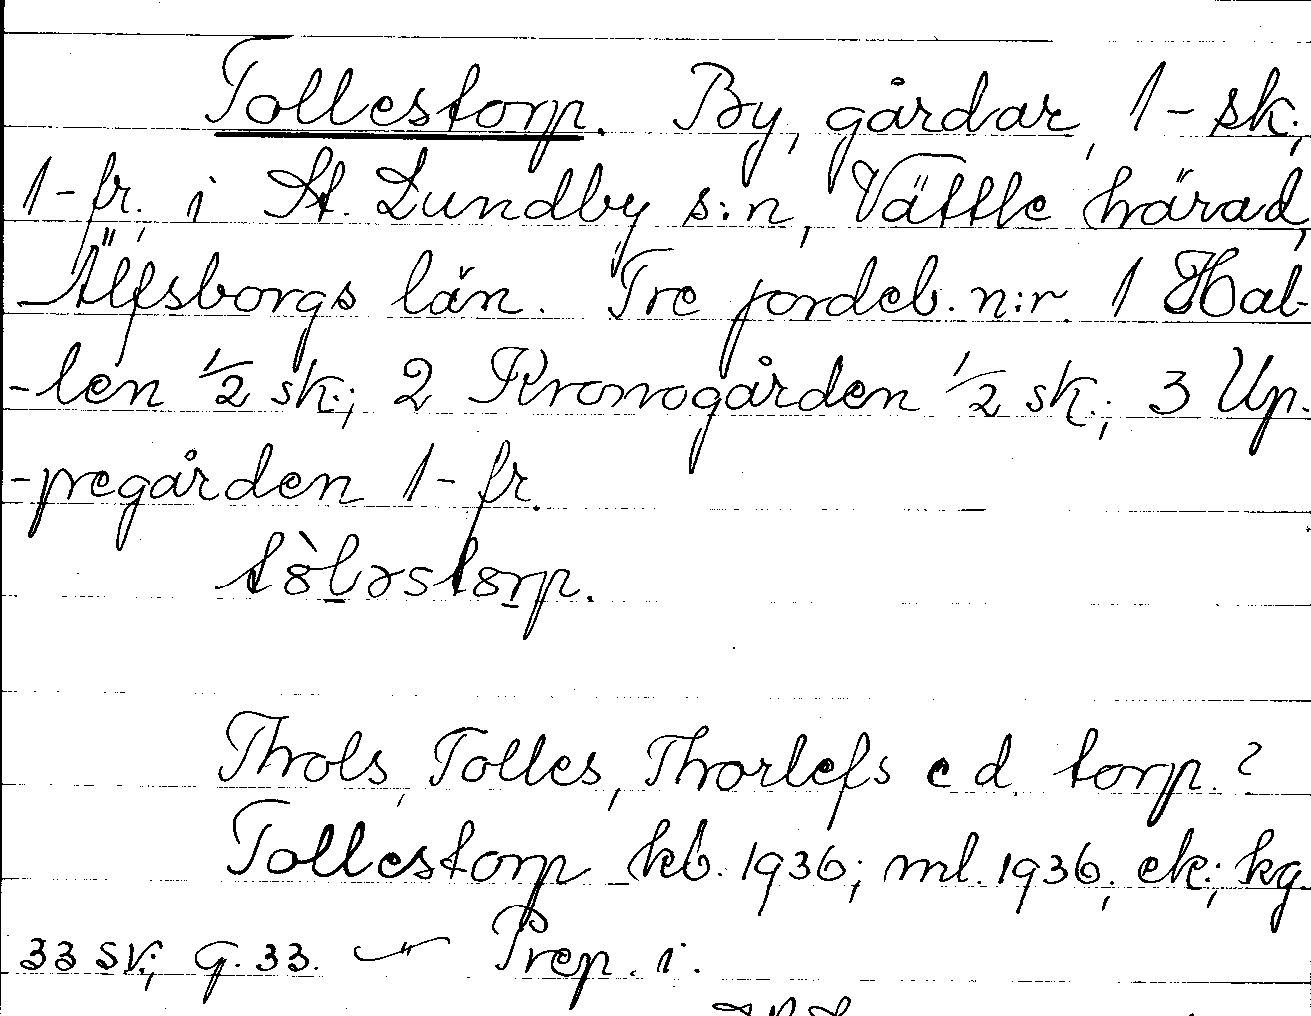 Tollestorp. By, gårdar, 1 - sk.,
1 - fr., i St. Lundby s:n, Vättle härad,
Älfsborgs län. Tre jordeb. n:r. 1 Hal-
-len 1/2 sk.; 2 Kronogården 1/2 sk.; 3 Up-
-pegården 1 - fr.
Thols, Tolles, Thorlefs e d. torp.?
Tollestorp kb. 1936; ml. 1936, ek.; kg.
33 sv.; g. 33. — " — Prep. i.